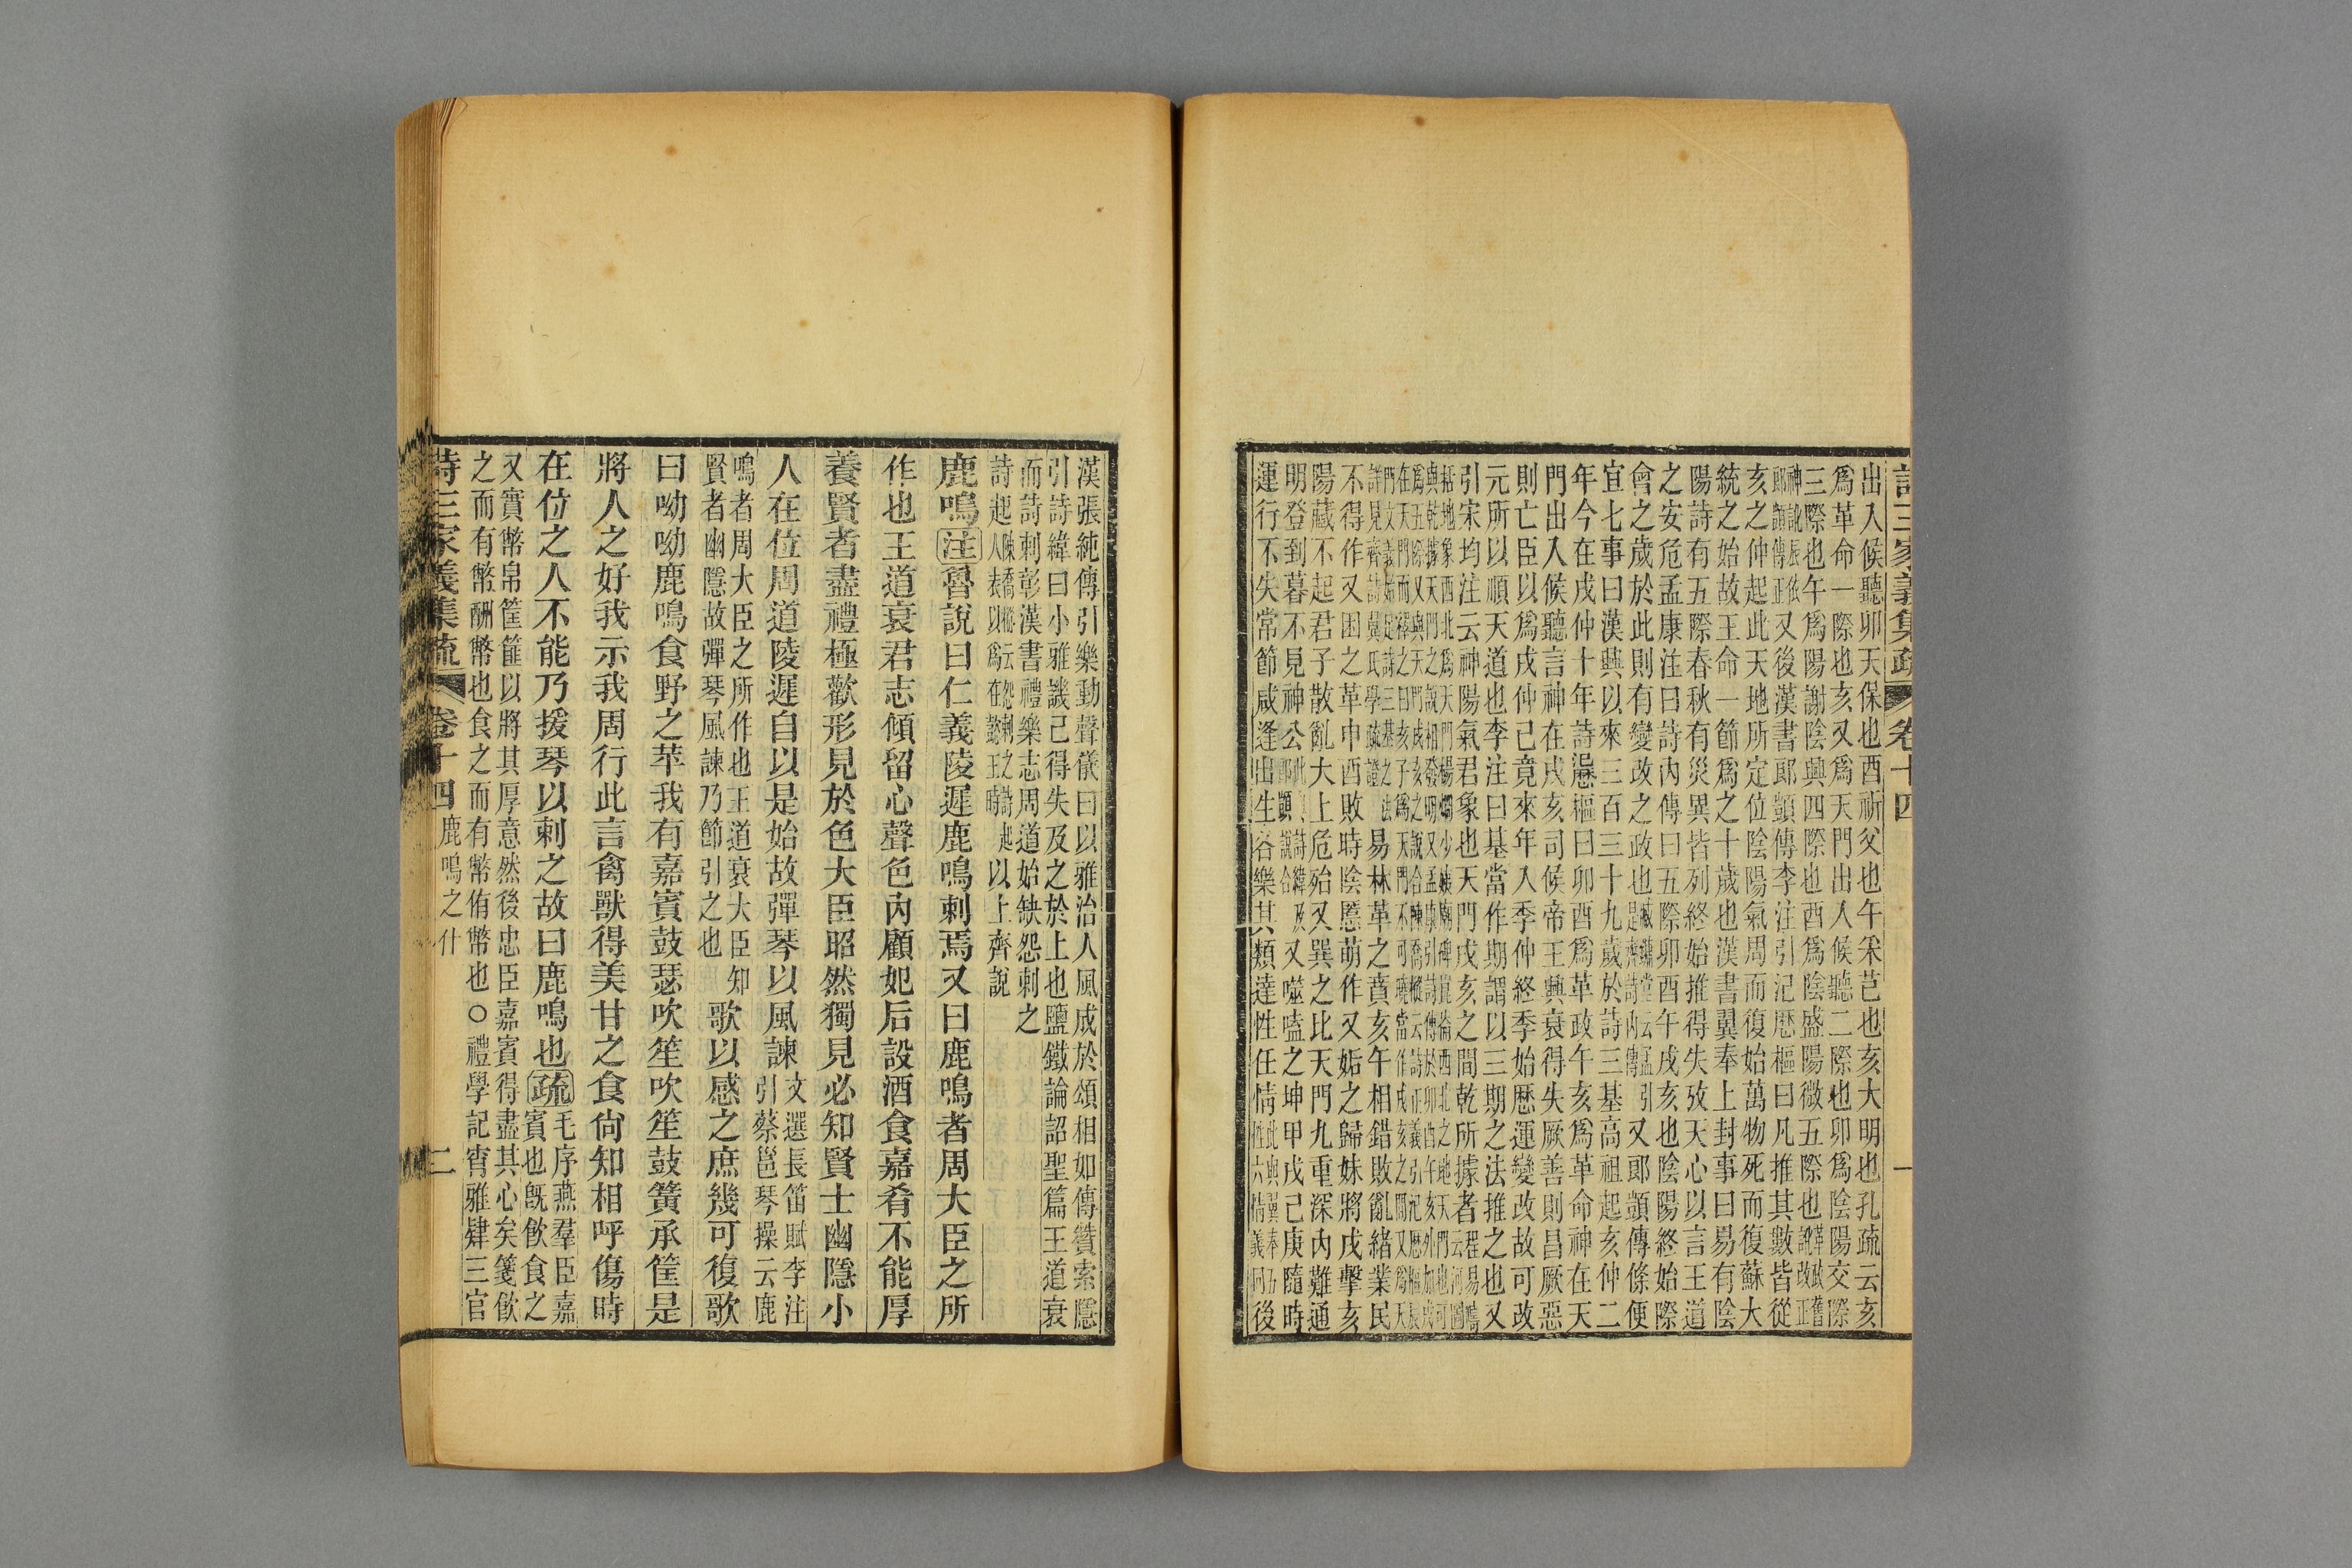 詩三家義集疏 卷十四 一
出入候聽卯天保也酉祈父也午采芑也亥大明也孔疏云亥
爲革命一際也亥又爲天門出入候聽二際也卯爲陰陽交際
三際也午爲陽謝陰興四際也酉爲陰盛陽微五際也
又後漢書郎顗傳李注引汜歷樞曰凡推其數皆從
亥之仲起此天地所定位陰陽氣周而復始萬物死而復蘇大
統之始故王命一節爲之十歲也漢書翼奉上封事曰易有陰
陽詩有五際春秋有災異皆列終始推得失攷天心以言王道
之安危孟康注曰詩內傳曰五際卯酉午戌亥也陰陽終始際
會之歲於此則有變改之政也 又郎顗傳條便
宜七事曰漢興以來三百三十九歲於詩三基高祖起亥仲二
年今在戌仲十年詩汜歷樞曰卯酉爲革政午亥爲革命神在天
門出入候聽言神在戌亥司候帝王興衰得失厥善則昌厥惡
則亡臣以爲戌仲已竟來年入季仲終季始歷運變改故可改
元所以順天道也李注曰基當作期謂以三期之法推之也又
引宋均注云神陽氣君象也天門戌亥之間乾所據者
易林革之賁亥午相錯敗亂緒業民
不得作又困之革申酉敗時陰慝萌作又姤之歸妹將戌擊亥
陽藏不起君子散亂大上危殆又巽之比天門九重深內難通
明登到暮不見神公 又噬嗑之坤甲戌己庚隨時
運行不失常節咸逢出生各樂其類達性任情 後
漢張純傳引樂動聲儀曰以雅治人風成於頌相如傳贊索隱
引詩緯曰小雅譏己得失及之於上也鹽鐵論詔聖篇王道衰
而詩刺彰漢書禮樂志周道始缺怨刺之
詩起 以上齊說
鹿鳴注魯說曰仁義陵遲鹿鳴刺焉又曰鹿鳴者周大臣之所
作也王道衰君志傾留心聲色內顧妃后設酒食嘉肴不能厚
養賢者盡禮極歡形見於色大臣昭然獨見必知賢士幽隱小
人在位周道陵遲自以是始故彈琴以風諫文選長笛賦李注
引蔡邕琴操云鹿
鳴者周大臣之所作也王道衰大臣知
賢者幽隱故彈琴風諫乃節引之也歌以感之庶幾可復歌
曰呦呦鹿鳴食野之苹我有嘉賓鼓瑟吹笙吹笙鼓簧承筐是
將人之好我示我周行此言禽獸得美甘之食尙知相呼傷時
在位之人不能乃援琴以刺之故曰鹿鳴也疏毛序燕羣臣嘉
賓也旣飮食之
又實幣帛筐篚以將其厚意然後忠臣嘉賓得盡其心矣箋飮
之而有幣酬幣也食之而有幣侑幣也○禮學記宵雅肄三官
詩三家義集疏 卷十四 鹿鳴之什 二